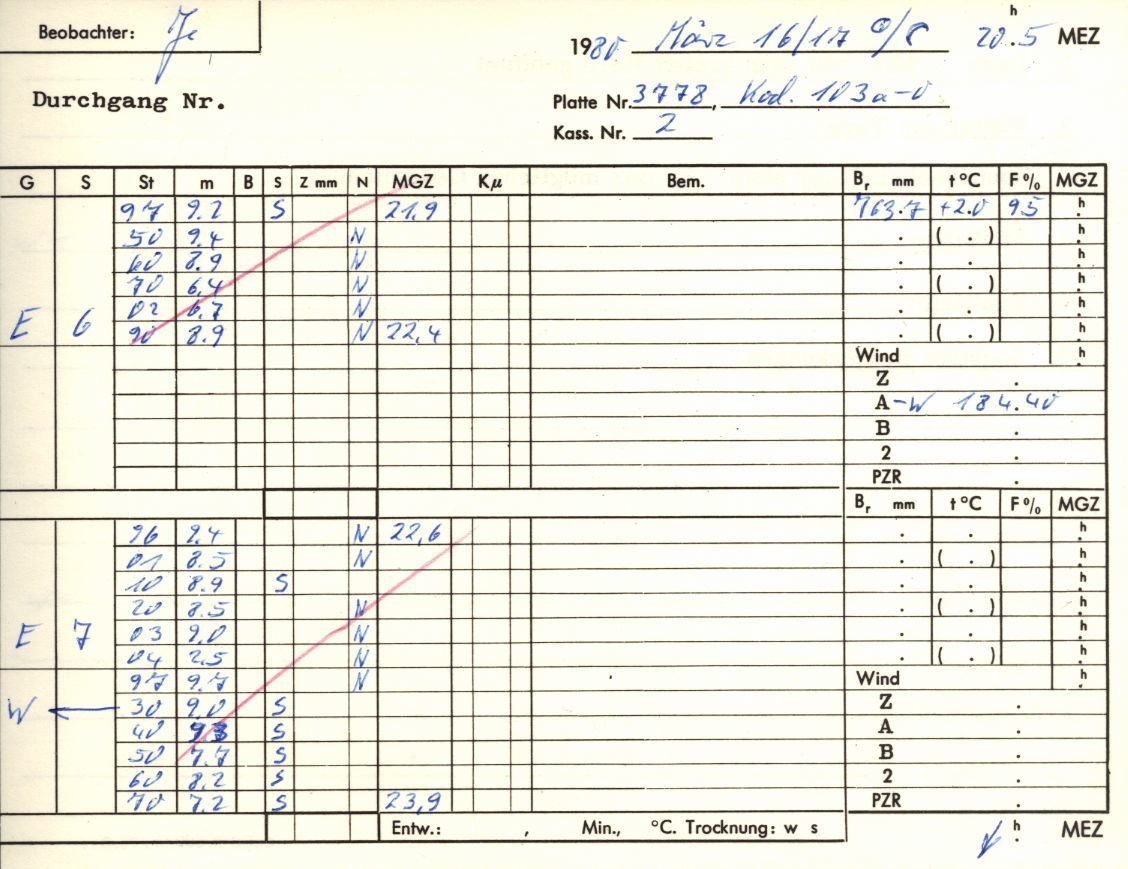 Beobachter: Je
1980 März 16/17 0/8 20.5 h MEZ
Durchgang Nr.
Platte Nr. 3778, Kod. 103a-0
Kass. Nr. 2
G S St m B S Z mm N MGZ Kμ Bem. Br mm t °C F% MGZ
97 9.2 S 21,9 763.7 +2.0 95 h
50 9.4 N . ( . ) h
60 8.9 N . . h
70 6.4 N . ( . ) h
02 6.7 N . . h
E 6 90 8.9 N 22,4 . ( . ) h
Wind h
Z .
A -W 184.40
B .
2 .
PZR .
Br mm t °C F% MGZ
96 9.4 N 22,6 . . h
01 8.5 N . ( . ) h
10 8.9 S . . h
20 8.5 N . ( . ) h
E 7 03 9.0 N . . h
04 2.5 N . ( . ) h
97 9.7 N Wind h
W ← 30 9.0 S Z .
40 S A .
50 7.7 S B .
60 8.2 S 2 .
70 7.2 S 23,9 PZR .
Entw.: , Min., °C. Trocknung: w s h MEZ